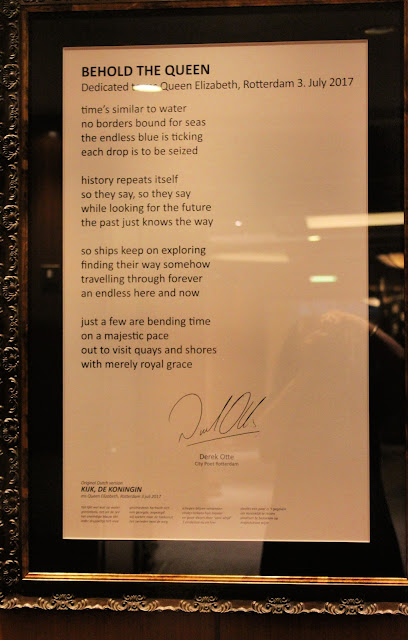 BEHOLD THE QUEEN
Dedicated Queen Elizabeth, Rotterdam 3. July 2017
time's similar to water
no borders bound for seas
the endless blue is ticking
each drop is to be seized
history repeats itself
so they say, so they say
while looking for the future
the past just knows the way
so ships keep on exploring
finding their way somehow
travelling through forever
an endless here and now
just a few are bending time
on a majestic pace
out to visit quays and shores
with merely royal grace
Derek Otte
City Poet Rotterdam
Original Dutch version
KIJK, DE KONINGIN
ms Queen Elizabeth, Rotterdam 3 juli 2017